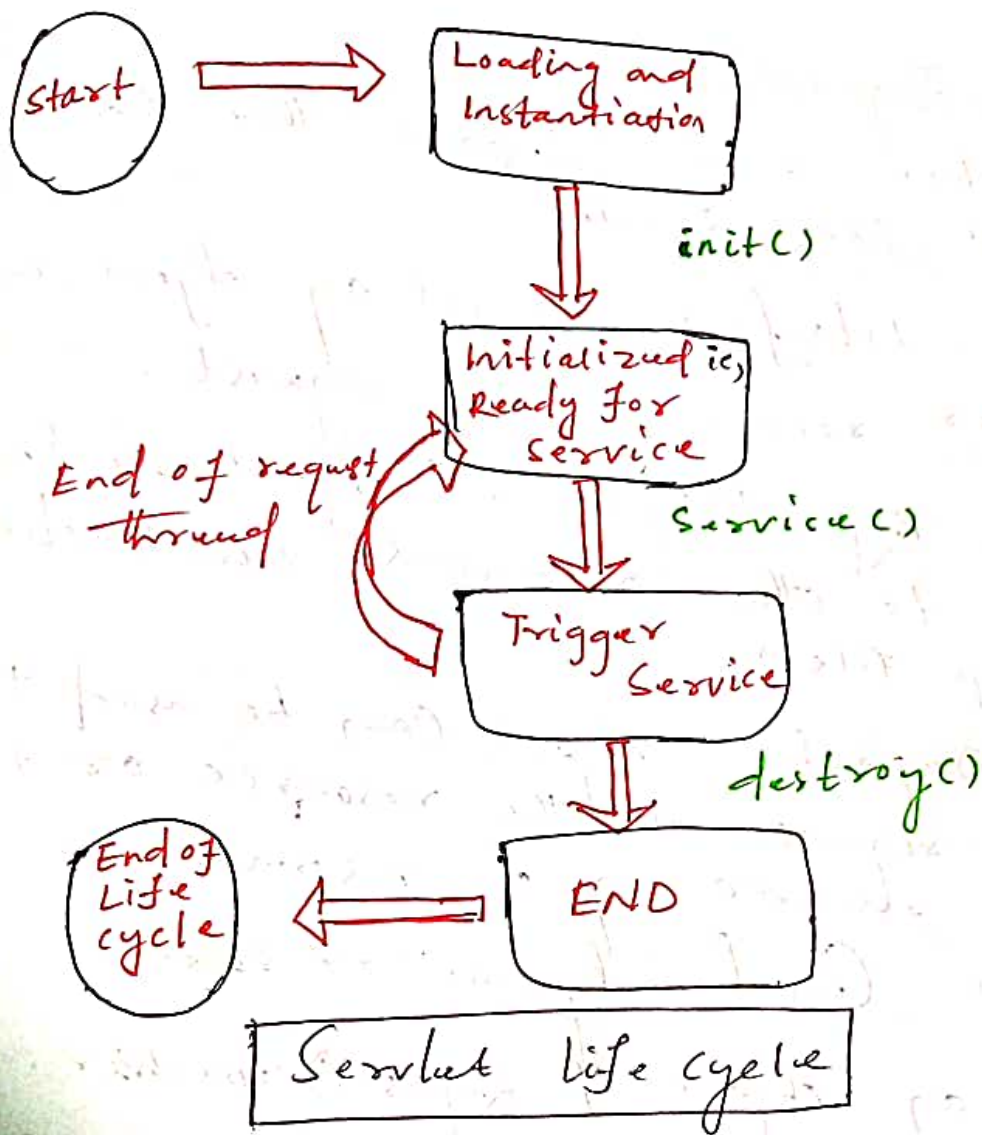 Start
Loading and
Instantiation
init()
Initialized ie,
Ready for
Service
End of request
thread
Service()
Trigger
Service
destroy()
END
End of
Life
cycle
Servlet Life cycle